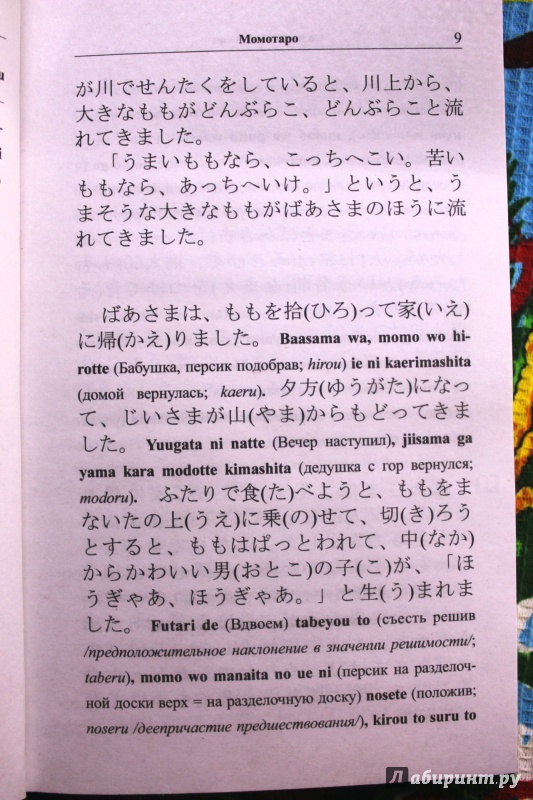 Момотаро 9
が川でせんたくをしていると、川上から、
大きなももがどんぶらこ、どんぶらこと流
れてきました。
「うまいももなら、こっちへこい。苦い
ももなら、あっちへいけ。」というと、う
まそうな大きなももがばあさまのほうに流
れてきました。
ばあさまは、ももを拾(ひろ)って家(いえ)
に帰(かえ)りました。 Baasama wa, momo wo hi-
rotte (Бабушка, персик подобрав; hirou) ie ni kaerimashita
(домой вернулась; kaeru). 夕方(ゆうがた)になっ
て、じいさまが山(やま)からもどってきま
した。 Yuugata ni natte (Вечер наступил), jiisama ga
yama kara modotte kimashita (дедушка с гор вернулся;
modoru). ふたりで食(た)べようと、ももをま
ないたの上(うえ)に乗(の)せて、切(き)ろう
とすると、ももはぱっとわれて、中(なか)
からかわいい男(おとこ)の子(こ)が、「ほ
うぎゃあ、ほうぎゃあ。」と生(う)まれま
した。 Futari de (Вдвоем) tabeyou to (съесть решив
/предположительное наклонение в значении решимости/;
taberu), momo wo manaita no ue ni (персик на разделоч-
ной доски верх = на разделочную доску) nosete (положив;
noseru /деепричастие предшествования/), kirou to suru to
Лабиринт.ру